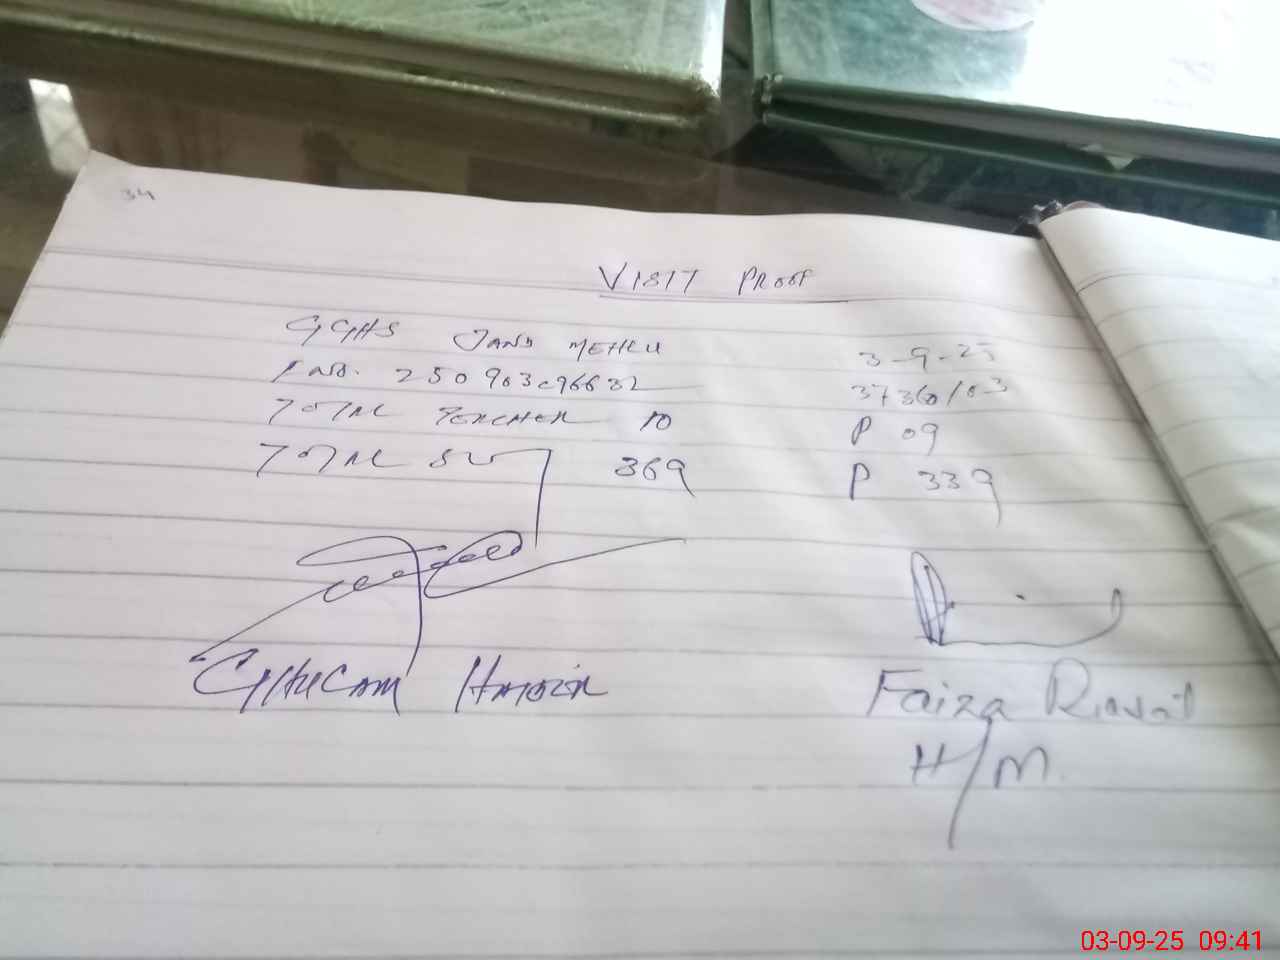 34
VISIT PROOF
GGHS JAND MEHLU 3-9-25
37360/03
TOTAL TEACHER 10 P 09
TOTAL 369 P 339
GHULAM
Faiza
H/M.
03-09-25 09:41